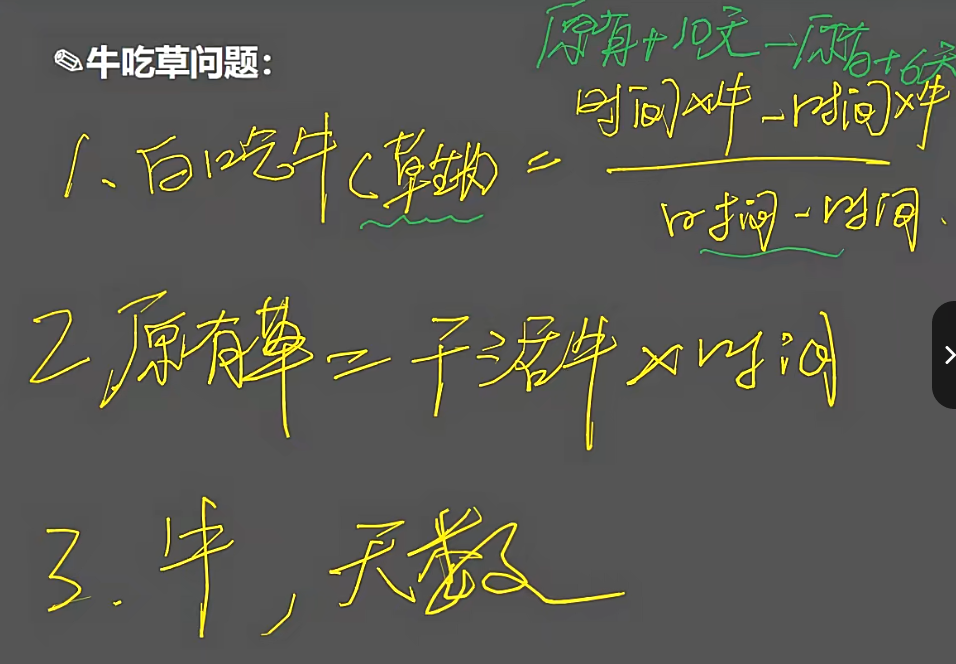 牛吃草问题:
原有+10天-原有+6天
1、白吃牛(草生长) = 时间×牛-时间×牛
时间-时间.
2、原有草=干活牛×时间
3.牛,天数